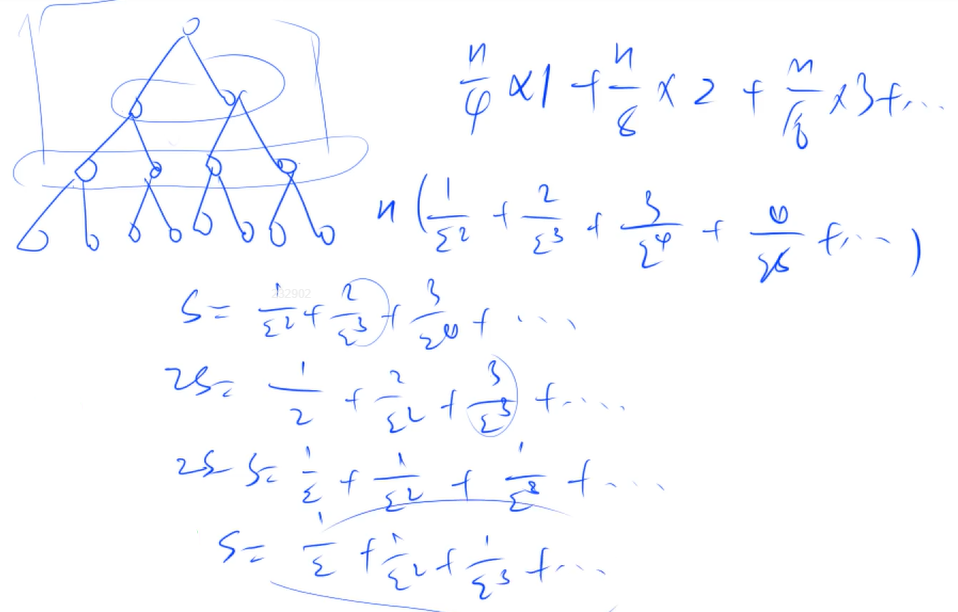 n/4 ×1 + n/8 × 2 + n/16 ×3+...
n ( 1/2² + 2/2³ + 3/2⁴ + 4/2⁵ +... )
S= 1/2² + 2/2³ + 3/2⁴ + ...
232902
2S= 1/2 + 2/2² + 3/2³ + ....
2S S= 1/2 + 1/2² + 1/2³ + ....
S= 1/2 + 1/2² + 1/2³ + ...